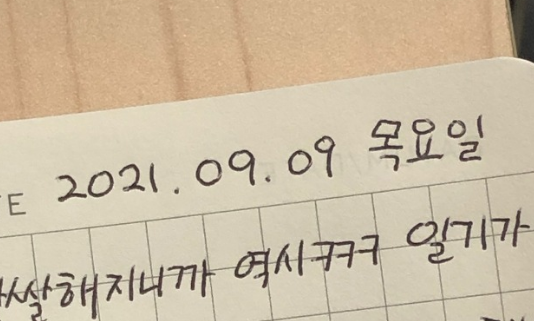 E 2021.09.09 목요일
쌀해지니까 역시ㅋㅋㅋ 일기가